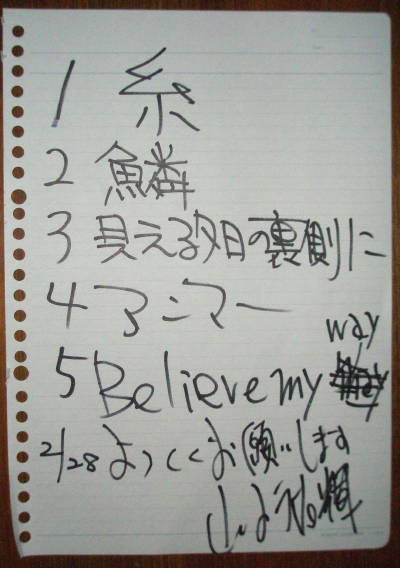 1 糸
2 鱗
3 見える夕日の裏側に
4 アンマー
5 Believe my way
2/28 よろしくお願いします